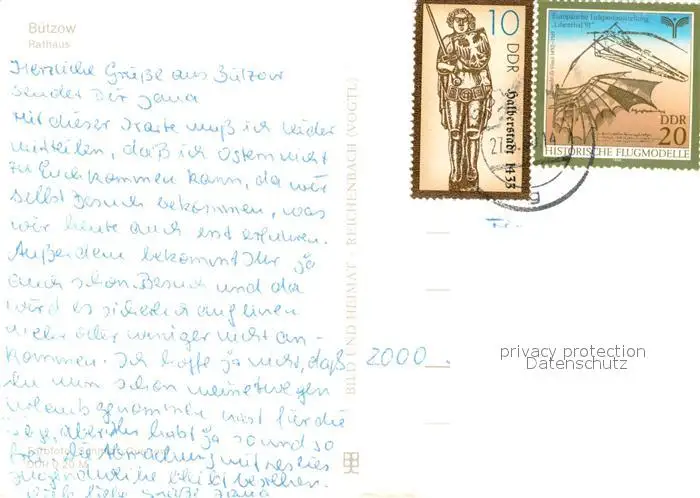 Bützow
Rathaus
Herzliche Grüße aus Bützow
sendet Dir Jana
Mit dieser Karte muß ich leider
mitteilen, daß ich Ostern nicht
zu Euch kommen kann, da wir
selbst Besuch bekommen, was
wir heute auch erst erfuhren.
Außerdem bekommt Ihr ja
auch schon Besuch und da
wird es sicherlich auf einen
mehr oder weniger nicht an-
kommen. Ich hoffe ja nicht, daß
Du nun schon meinetwegen
Urlaub genommen hast für die
Tage, aber Ihr habt ja so und so
die Abmachung mit
Jugendweihe bleibt bestehen.
Viele liebe Grüße Jana
BILD UND HEIMAT · REICHENBACH (VOGTL)
10
DDR
Halberstadt 1433
Europäische Luftpostausstellung
"Lilienthal '91"
DDR
20
HISTORISCHE FLUGMODELLE
2000
privacy protection
Datenschutz